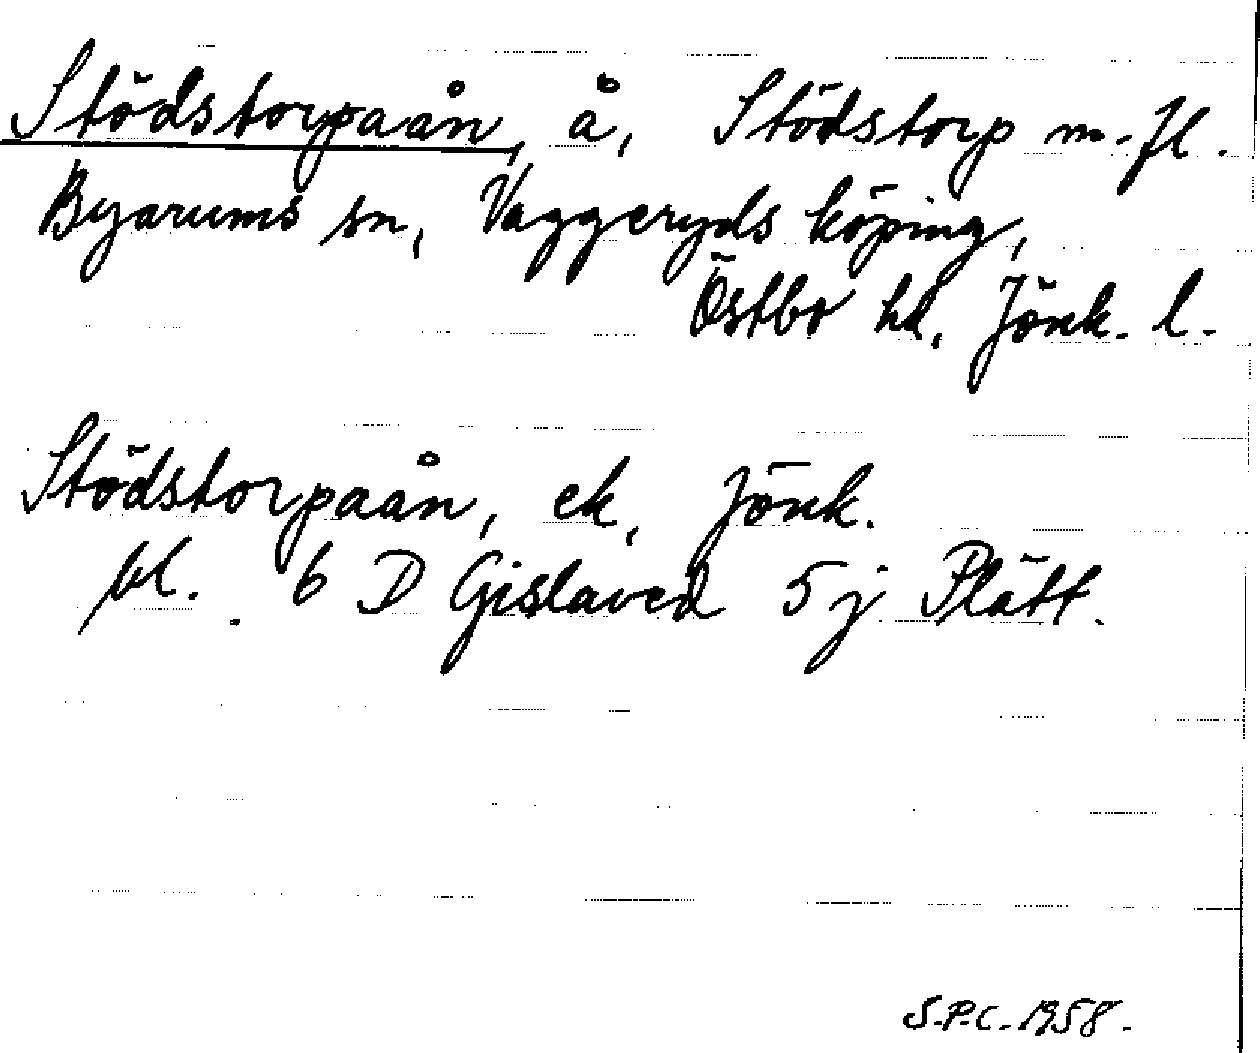 Stödstorpaån, å, Stödstorp m. fl.
Byarums sn, Vaggeryds köping,
Östbo hd, Jönk. l.
Stödstorpaån, ek, Jönk.
bl. 6 D Gislaved 5 j Plätt.
S.P.C. 1958.